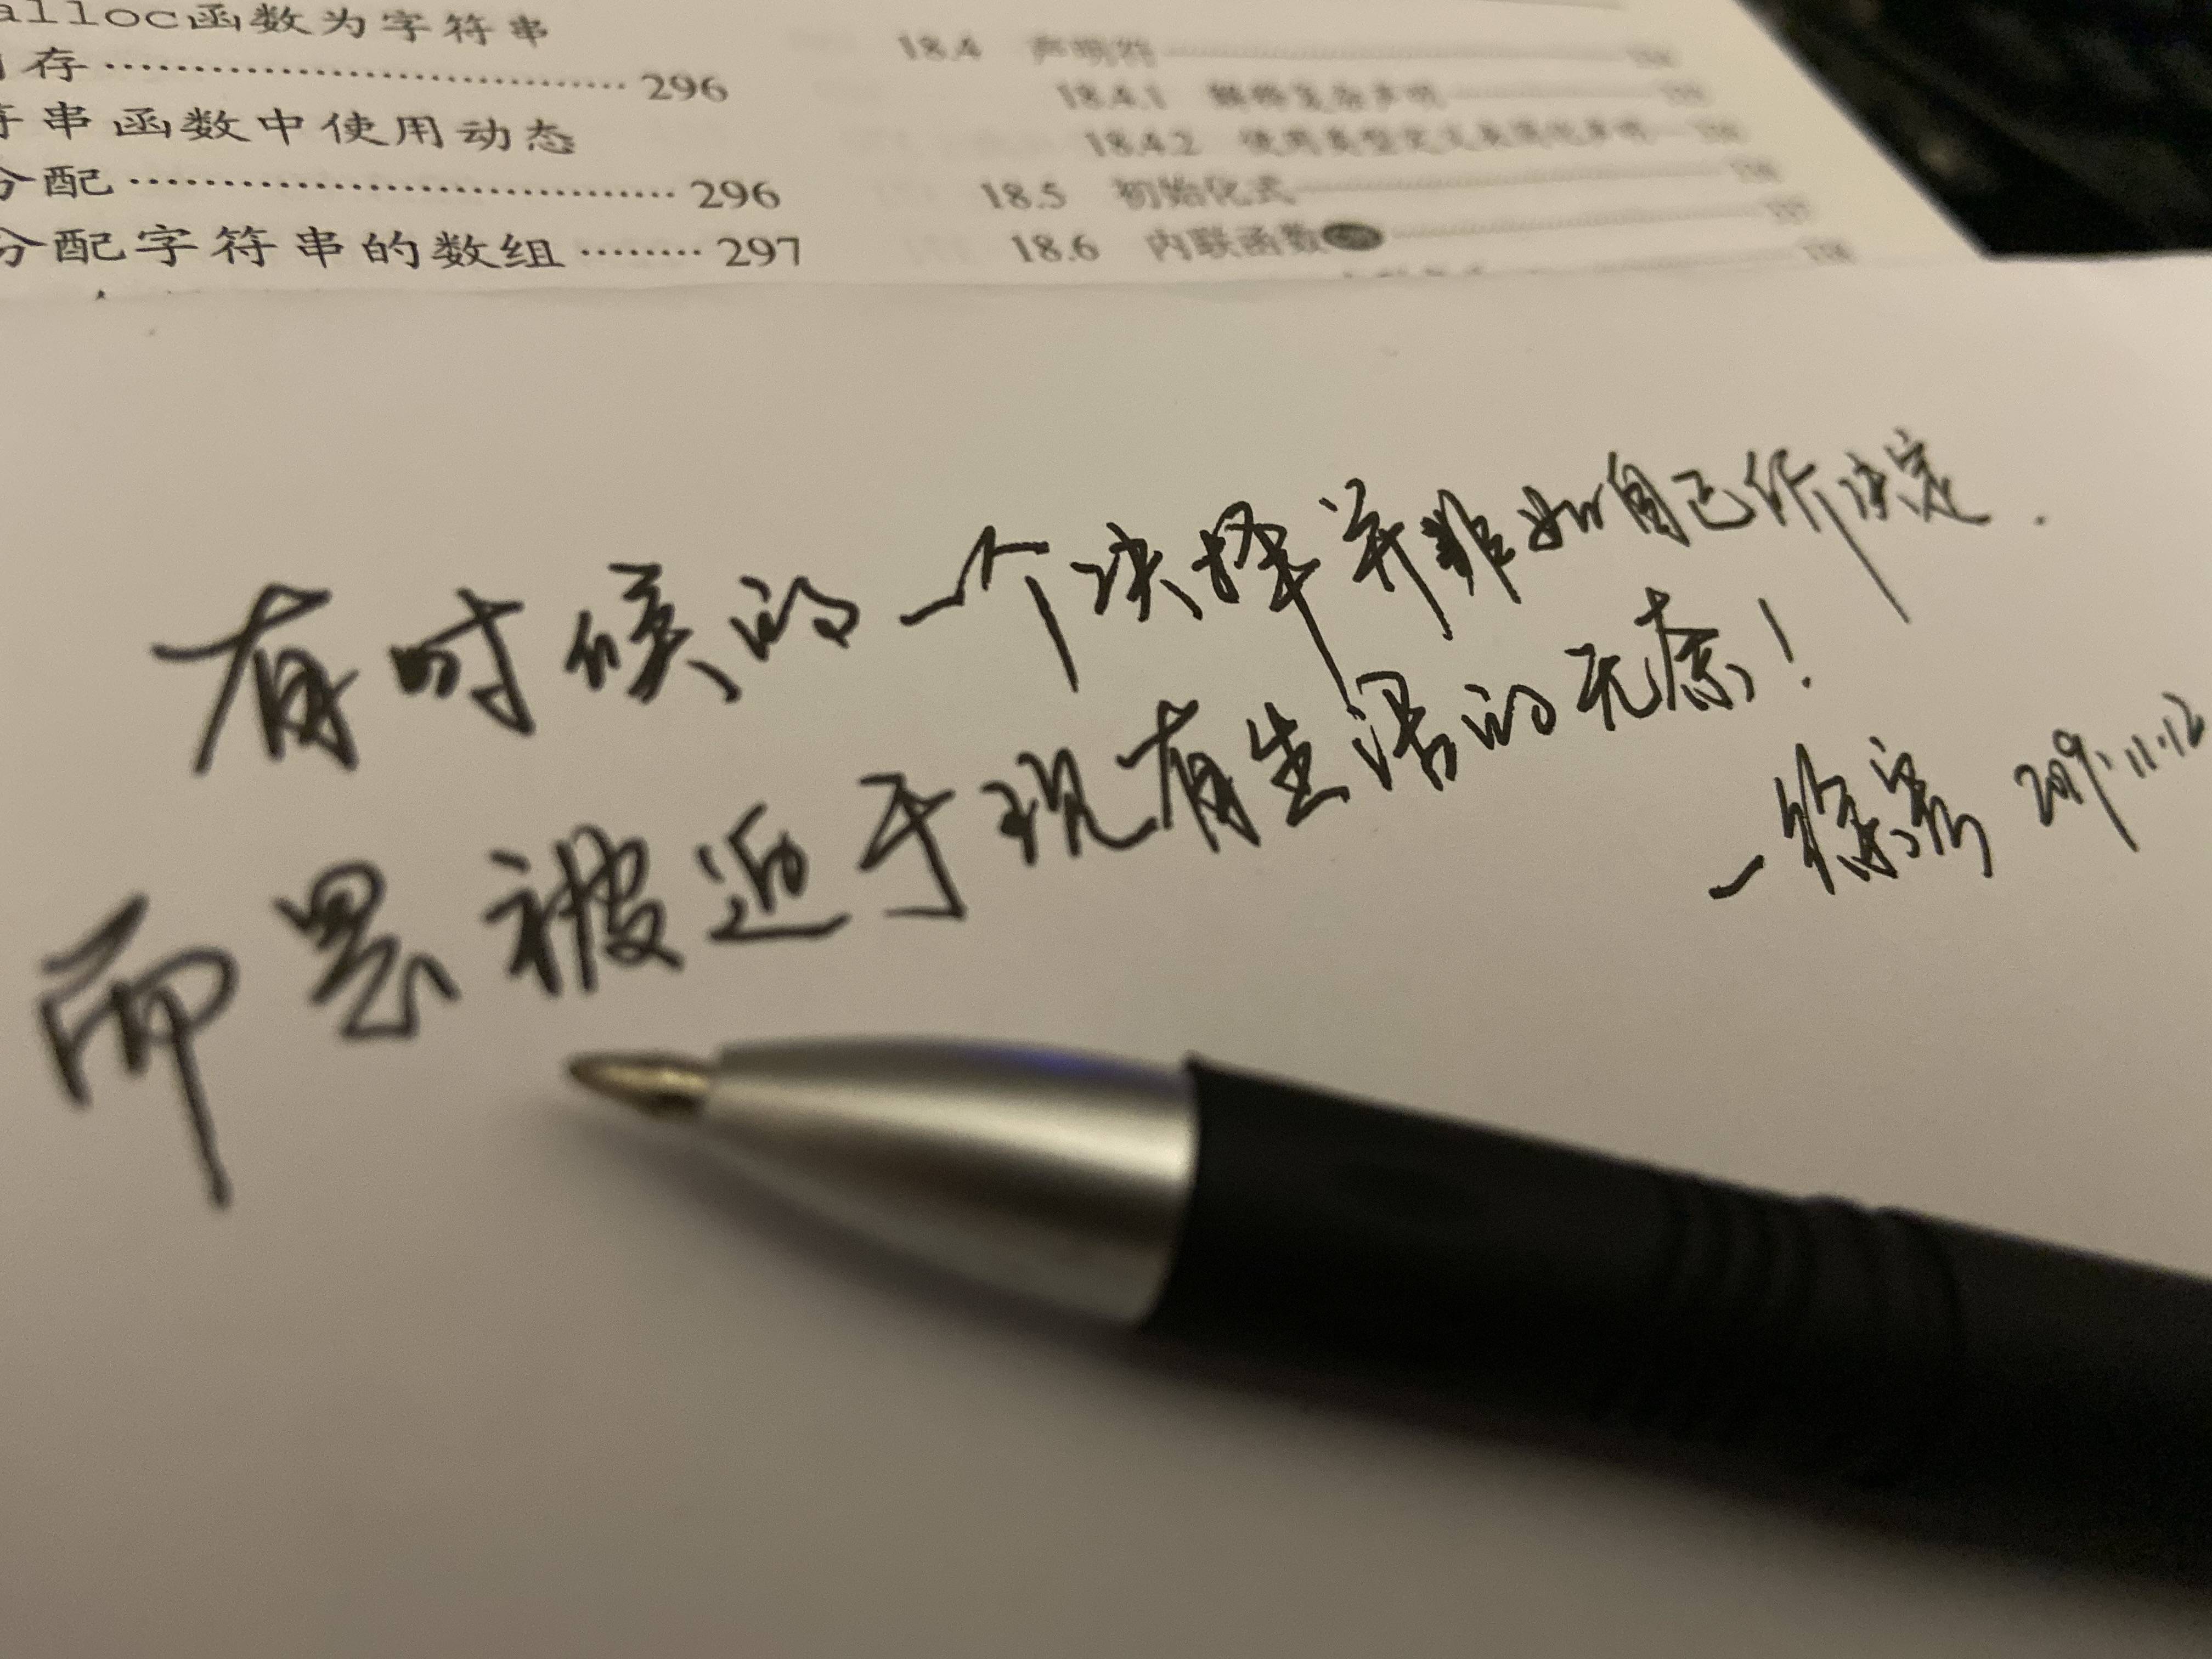 alloc函数为字符串
存 296
串函数中使用动态
分配 296
分配字符串的数组 297
18.4 声明符
18.4.1 解释复杂声明
18.4.2 使用类型定义来简化声明
18.5 初始化式
18.6 内联函数
有时候的一个决择并非如自己所决定.
而是被迫于现有生活的无奈!
2019.11.12